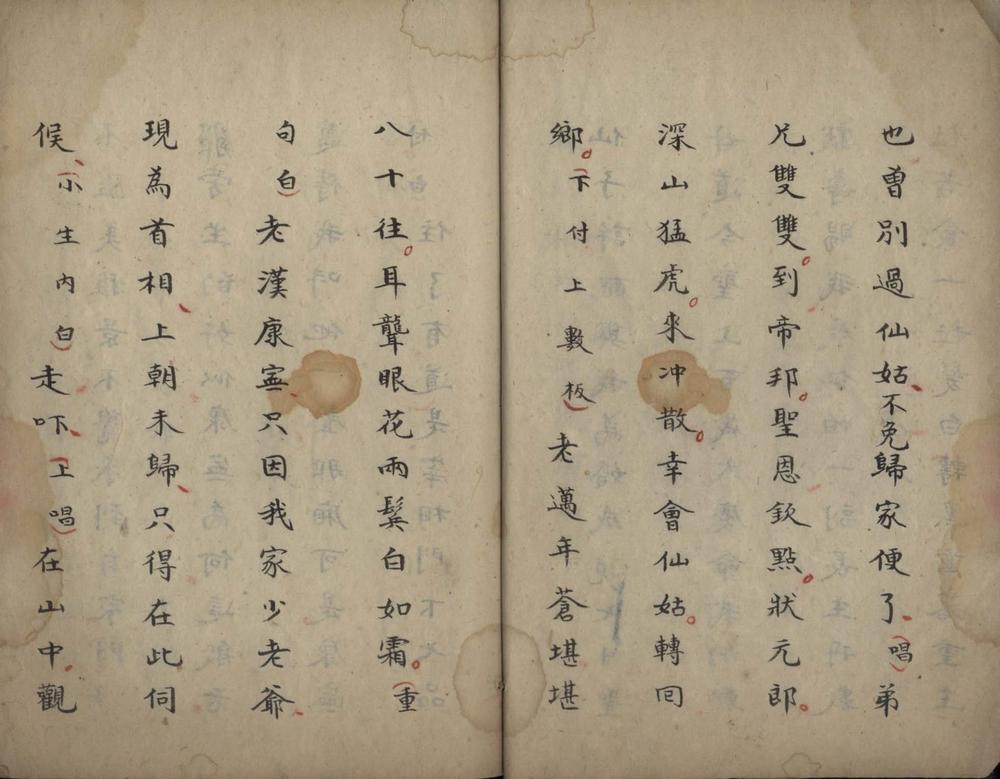 也曾別過仙姑不免歸家便了(唱)弟
兄雙雙到帝邦聖恩欽點狀元郎
深山猛虎來冲散幸會仙姑轉囘
鄉(下付上數板)老邁年蒼堪堪
八十往耳聾眼花兩鬓白如霜(重
句白)老漢康寍只因我家少老爺
現為首相上朝未歸只得在此伺
候(小生內白)走吓(上唱)在山中觀